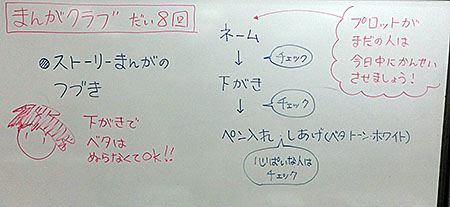 まんがクラブ だい8回
●ストーリーまんがの
つづき
下がきで
ベタは
ぬらなくてOK!!
ネーム
↓ チェック
下がき
↓ チェック
ペン入れ・しあげ(ベタ・トーン・ホワイト)
心ぱいな人は
チェック
プロットが
まだの人は
今日中にかんせい
させましょう!